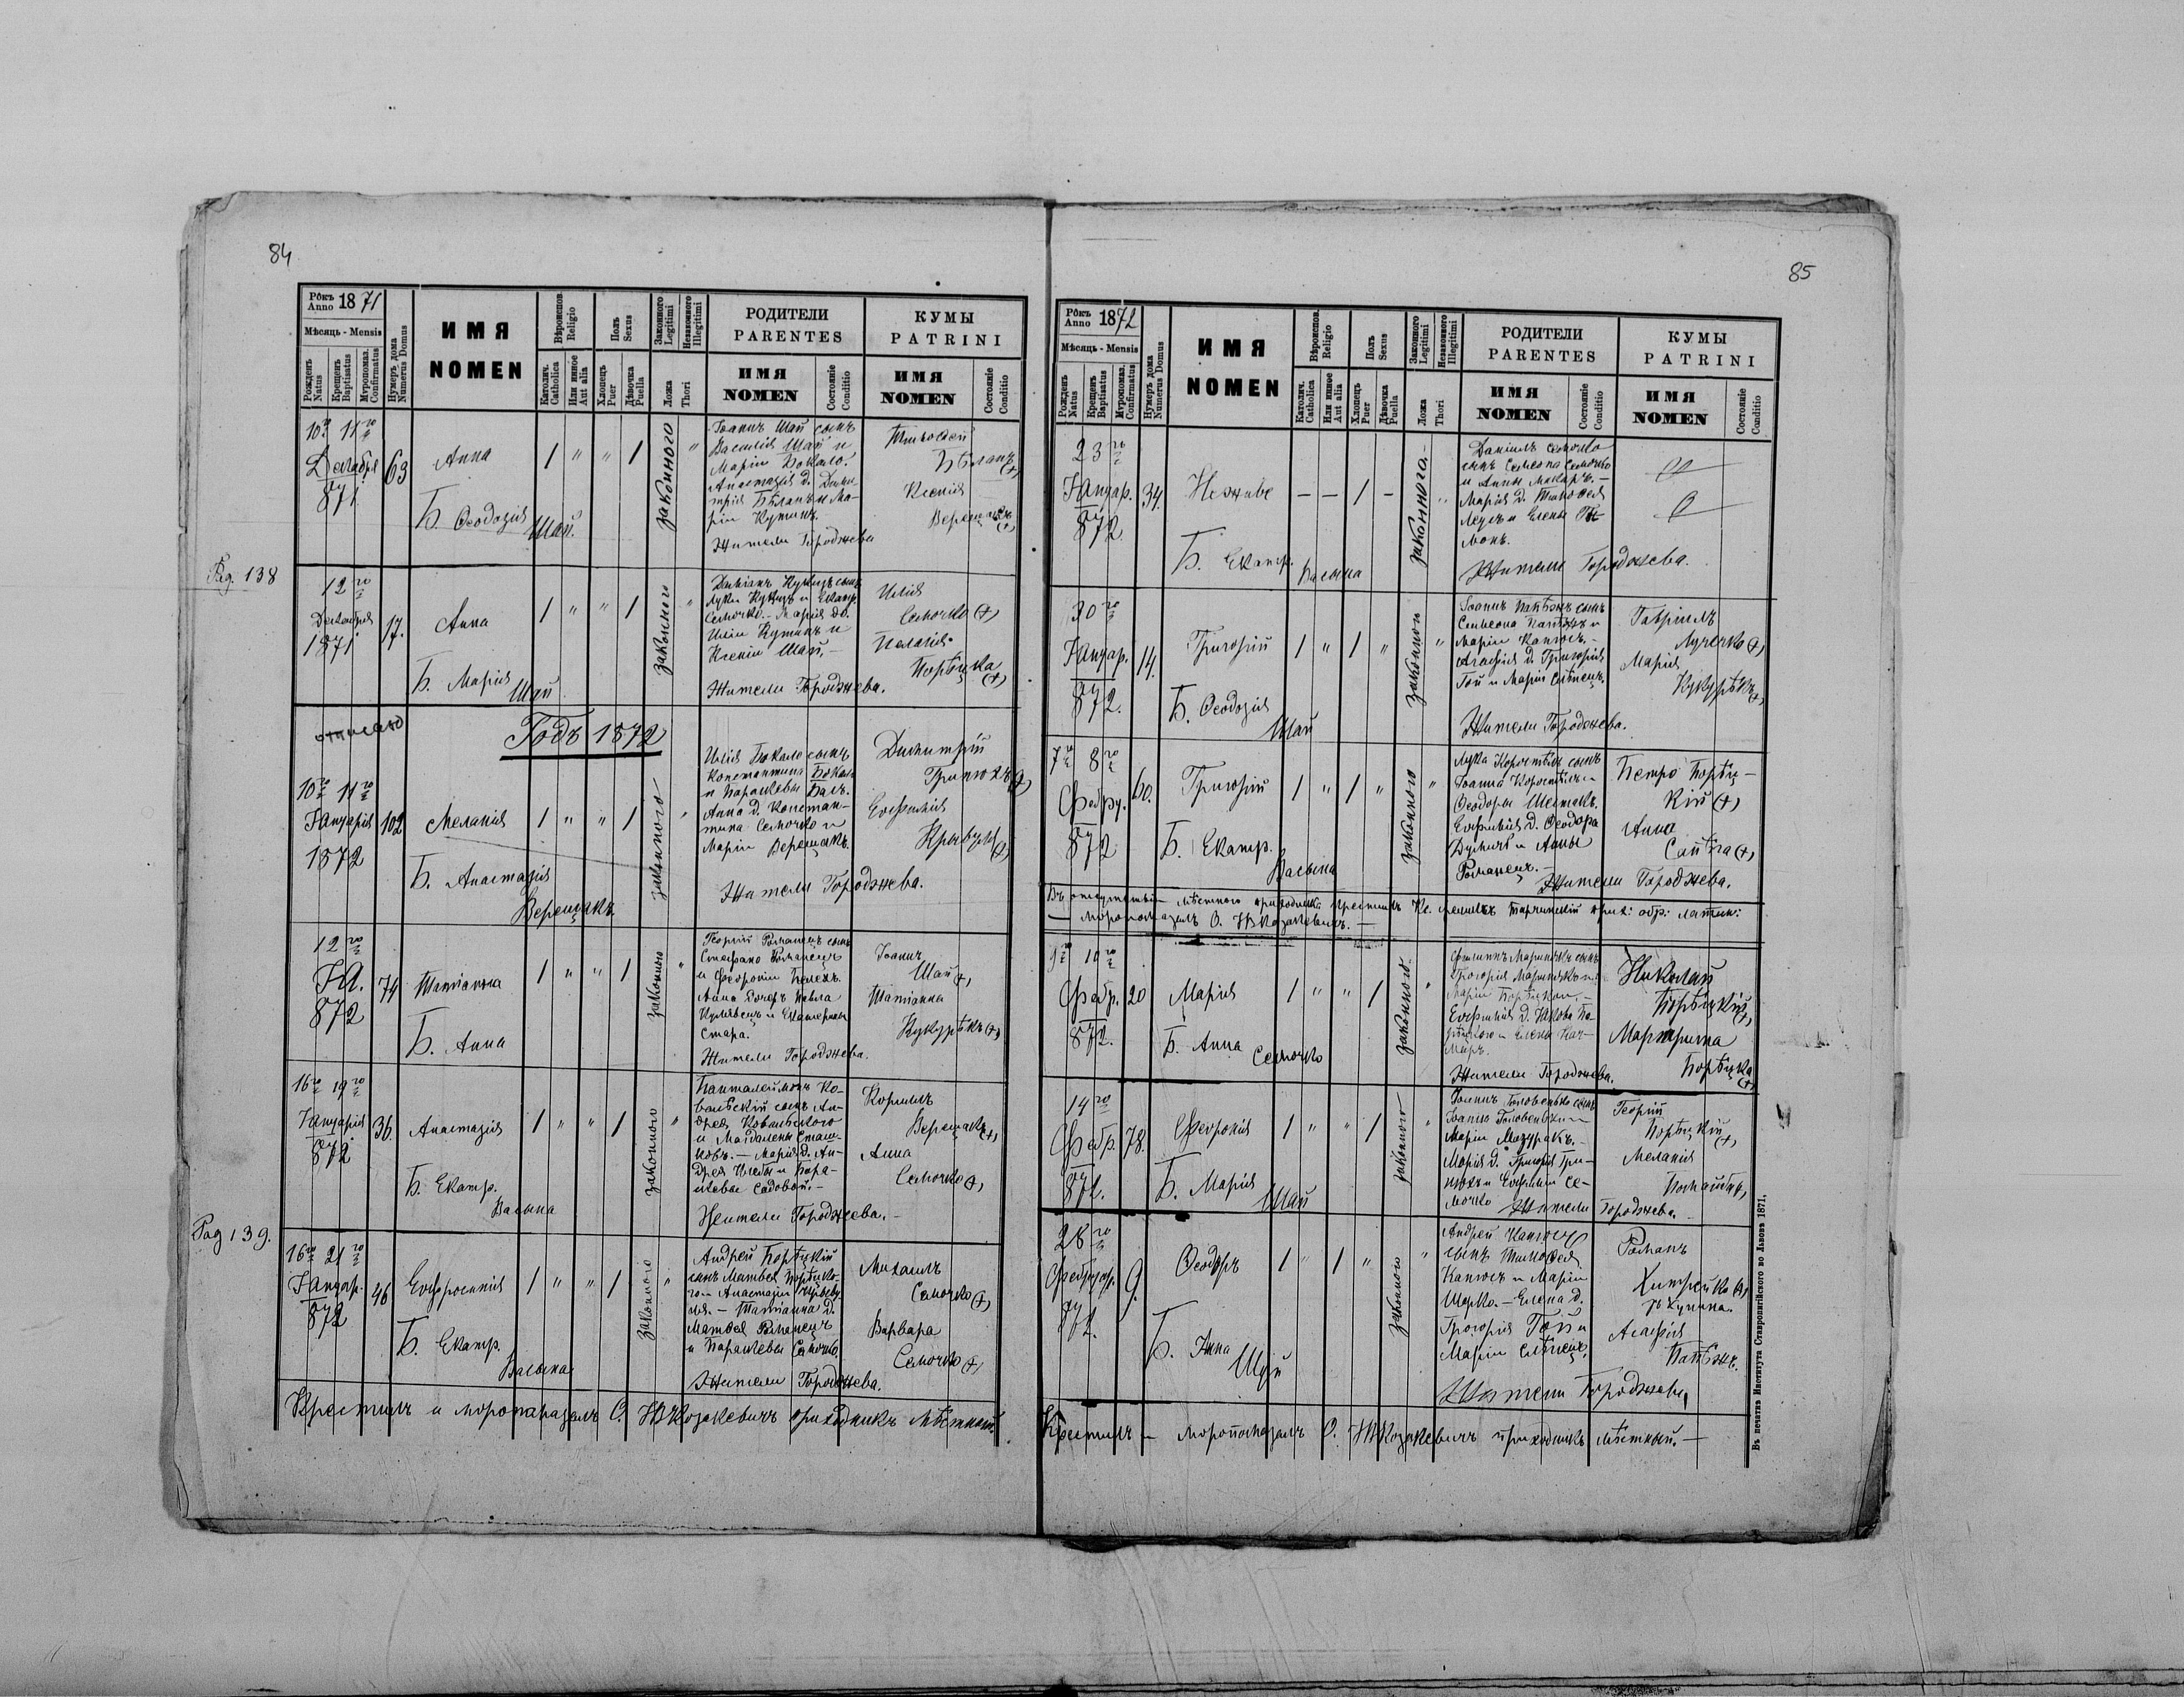 84
Рокъ Anno 1871
Мѣсяць - Mensis
Рожденъ Natus
Крещенъ Baptisatus
Муропомаз. Confirmatus
Нумеръ дома Numerus Domus
ИМЯ
NOMEN
Вѣроиспов. Religio
Католич. Catholica
Или иное Aut alia
Полъ Sexus
Хлопець Puer
Дѣвочка Puella
Законного Legitimi
Незаконного Illegitimi
Ложа Thori
РОДИТЕЛИ
PARENTES
ИМЯ
NOMEN
Состояніе Conditio
КУМЫ
PATRINI
ИМЯ
NOMEN
Состояніе Conditio
10го 11го
Декабря
871.
63
Анна
Б. Ѳеодозія
Шай.
законного
Іоаннъ Шай сынъ
Василія Шай и
Маріи Бокало.
Анастазія д. Дими-
трія Бѣланъ и Ма-
ріи Кутинъ.
Жители Городжева
Тимоѳей
Бѣланъ (+)
Ксенія
Pag. 138
12го
Декабря
1871
17.
Анна
Б. Марія
Шай
законного
Луки
и Екатр.
Семочко. - Марія до.
Иліи Кутинъ и
Ксеніи Шай. -
Жители Городжева.
Илія
Семочко (+)
Пелагія
Порѣцка (+)
Годъ 1872
10го 11го
Януарія
1872
102
Меланія
Б. Анастазія
Верещакъ.
законного
Илія Бокало сынъ
Константина Бокало
и Параскевы
Анна д. Констан-
тина Семочко и
Маріи Верещакъ.
Жители Городжева.
Димитрій
Евфимія
12го
Я.
872
74
Татіанна
Б. Анна
законного
Георгій Романецъ сынъ
Стефана Романецъ
и Февроніи
Анна дочерь Павла
и Екатерины
Стара.
Жители Городжева.
Іоаннъ
Шай (+)
Татіанна
Кукурѣкъ (+)
16го 19го
Януарія
872
36.
Анастазія
Б. Екатр.
Васына
законного
Панталеймонъ Ко-
валѣскій сынъ Ан-
дрея Ковалѣского
и Магдалены Сташ-
ковъ. - Марія д. Ан-
дрея и Пара-
скевы Садовой. -
Жители Городжева. -
Корнилъ
Верещакъ (+)
Анна
Семочко (+)
Pag 139.
16го 21го
Януар.
872
46
Евфросинія
Б. Екатр.
Васына
законного
Андрей Порѣцкій
сынъ Матѳея Порѣцко-
го и Анастазіи
Татіанна д.
Матѳея Романецъ
и Параскевы Семочко.
Жители Городжева.
Михаилъ
Семочко (+)
Варвара
Семочко (+)
Крестилъ и моропомазалъ О. Козакевичъ приходникъ мѣстный.
85
Рокъ Anno 1872
Мѣсяць - Mensis
Рожденъ Natus
Крещенъ Baptisatus
Муропомаз. Confirmatus
Нумеръ дома Numerus Domus
ИМЯ
NOMEN
Вѣроиспов. Religio
Католич. Catholica
Или иное Aut alia
Полъ Sexus
Хлопець Puer
Дѣвочка Puella
Законного Legitimi
Незаконного Illegitimi
Ложа Thori
РОДИТЕЛИ
PARENTES
ИМЯ
NOMEN
Состояніе Conditio
КУМЫ
PATRINI
ИМЯ
NOMEN
Состояніе Conditio
23го
Януар.
872
34.
Неживе
Б. Екатр.
Васына
законного. -
Даніилъ Семочко
сынъ Симеона Семочко
и Анны
Марія д. Тимоѳея
и Елены
Жители Городжева.
30го
Януар.
872.
14.
Григорій
Б. Ѳеодозія
Шай
законного
Іоаннъ Патѣжъ сынъ
Симеона Патѣжъ и
Маріи Капюсъ. -
Агафія д. Григорія
Гой и Маріи Слѣпецъ.
Жители Городжева.
Гавріилъ
Лучечко (+)
Марія
Кукурѣкъ (+)
7го 8го
Февру.
872
60.
Григорій
Б. Екатр.
Васына
законного
Лука Коростѣль сынъ
Іоанна Коростѣль и
Ѳеодоры Шестакъ.
Евфимія д. Ѳеодора
и Анны
Романецъ. -
Жители Городжева.
Петро Порѣц-
кій (+)
Анна
Въ отсутствіи мѣстного приходника крестилъ
моропомазалъ О. Козакевичъ. -
9го 10го
Февр.
872.
20
Марія
Б. Анна
Семочко
законного.
Филиппъ Маринякъ сынъ
Григорія Мариняка и
Маріи Порѣцкои. -
Евфимія д. Якова По-
рѣцкого и Елены
Жители Городжева.
Николай
Порѣцкій (+)
Маргарита
Порѣцка (+)
14го
Февр.
872.
78.
Февронія
Б. Марія
Шай
законного
Іоаннъ Головенько сынъ
Іоанна Головенько и
Маріи Мазуракъ. -
Марія д. Григорія Гри-
и Евфиміи Се-
мочко Жители Городжева. -
Георгій
Порѣцкій (+)
Меланія
28го
Февруар.
872.
9.
Ѳеодоръ
Б. Анна
Шуй
законного
Андрей Капюсъ
сынъ Тимоѳея
Капюсъ и Маріи
Шарко. - Елена д.
Григорія Гой и
Маріи Слѣпецъ.
Жители Городжева.
Романъ
Агафія
Патѣжъ.
Крестилъ и моропомазалъ О. Козакевичъ приходникъ мѣстный. -
Въ печатнѣ Института Ставропигійского во Львовѣ 1871.